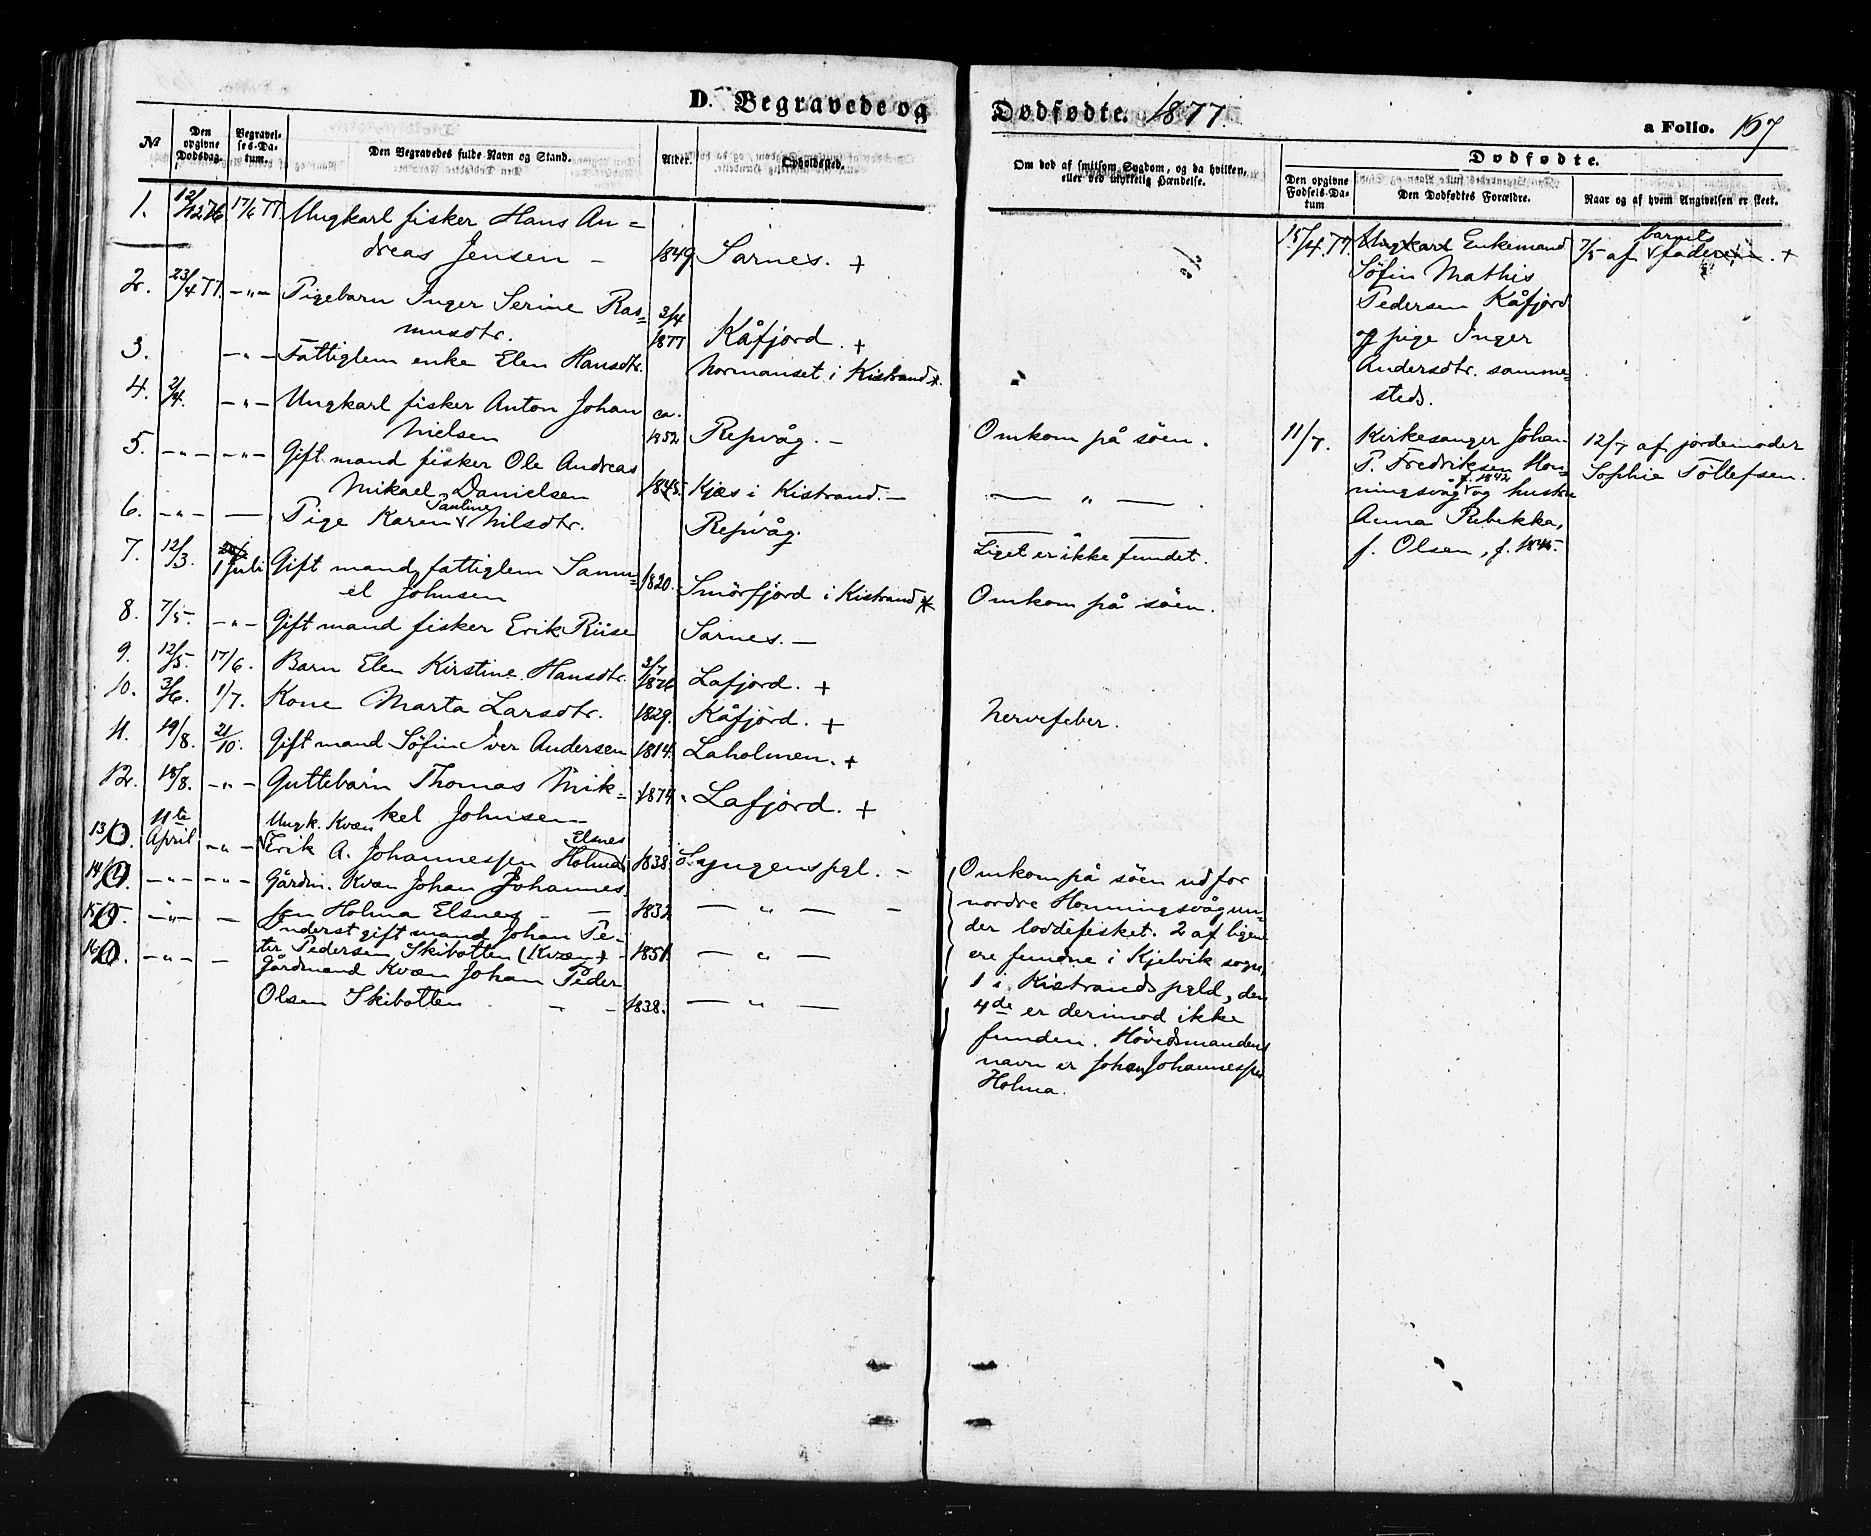 D. Begravede og Dødfødte. 1877.
a Folio. 167
№
Den opgivne Dødsdag.
Begravelses-Datum.
Den Begravedes fulde Navn og Stand.
Alder.
Opholdssted.
Om død af smitsom Sygdom, og da hvilken, eller ved ulykkelig Hændelse.
Dødfødte.
Den opgivne Fødsels-Datum
Den Dødfødtes Forældre.
Naar og af hvem Angivelsen er skeet.
1. 12/12 76 17/6 77 Ungkarl fisker Hans An=
dreas Jensen – 1849 Sarnes. +
2. 23/4 77. –"– Pigebarn Inger Serine Ras=
musdtr. 3/4 1877 Kåfjord. +
3. –"– Fattiglem enke Elen Hansdtr. Normanset i Kistrand *.
4. 2/4. –"– Ungkarl fisker Anton Johan
Nielsen ca. 1852 Repvåg. – Omkom på söen.
5. –"– –"– Gift mand fisker Ole Andreas
Mikael Danielsen 1845. Kjæs i Kistrand. – — " —
6. –"– — Pige Karen Pauline Nilsdtr. Repvåg. Liget er ikke fundet.
7. 12/3. 1 Juli Gift mand, fattiglem Samu=
el Johnsen 1820. Smörfjord i Kistrand * Omkom på söen.
8. 7/5. –"– Gift mand fisker Erik Riise Sarnes. –
9. 12/5. 17/6. Barn Elen Kirstine Hansdtr. 2/7 1876 Lafjord. +
10. 3/6. 1/7. Kone Marta Larsdtr. 1829. Kåfjord. + Nervefeber.
11. 19/8. 21/10. Gift mand Söfin Iver Andersen 1814. Laholmen. +
12. 18/8. –"– Guttebarn Thomas Mik=
kel Johnsen 1874. Lafjord. +
13. 11te April –"– Ungk. Kvæn
Erik A. Johannessen Elsnes Holma 1838 Lyngens pgl. –
14. –"– –"– Gårdm. Kvæn Johan Johannes
sen Holma Elsnes – – 1832 — " — –
15. –"– – Inderst gift mand Johan Pe-
ter Pedersen Skibotten (Kvæn) – 1851. — " —
16. –"– – Gårdmand Kvæn Johan Peder
Olsen Skibotten – – 1838. — " —
Omkom på söen udfor
nordre Honningsvåg un-
der loddefisket. 2 af ligene
ere fundne i Kjelvik sogn,
1 i Kistrands pgld, den
4de er derimod ikke
funden. Hövedsmandens
navn er Johan Johannessen
Holma.
15/4 77. Ungkarl Enkemand
Söfin Mathis
Pedersen Kåfjord
og pige Inger
Andersdtr. samme-
steds.
7/5 af barnets faderen. +
11/7. Kirkesanger Johan
P. Fredriksen Hon-
ningsvåg f. 1842 og hustru
Anna Rebekka,
f. Olsen, f. 1845.
12/7 af jordemoder
Sophie Töllefsen.